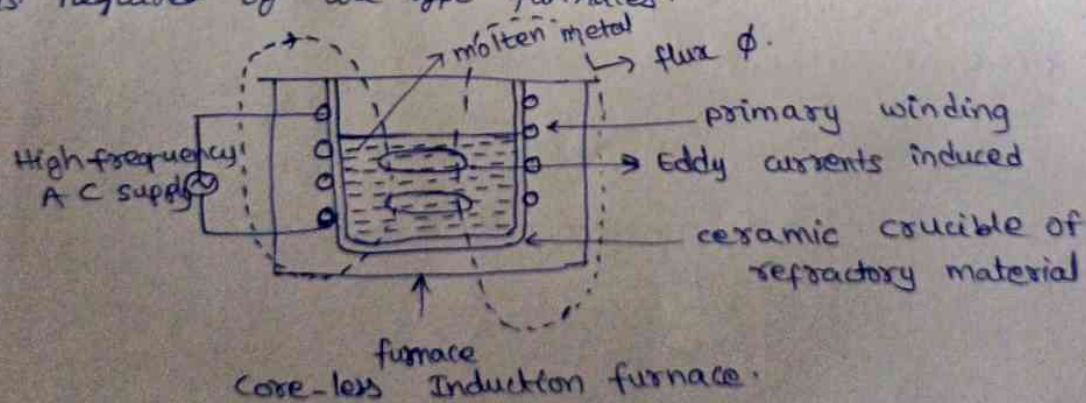 is required by arc type furnaces.
molten metal
flux φ.
primary winding
High frequency
A C supply
Eddy currents induced
ceramic crucible of
refractory material
furnace
Core-less Induction furnace.